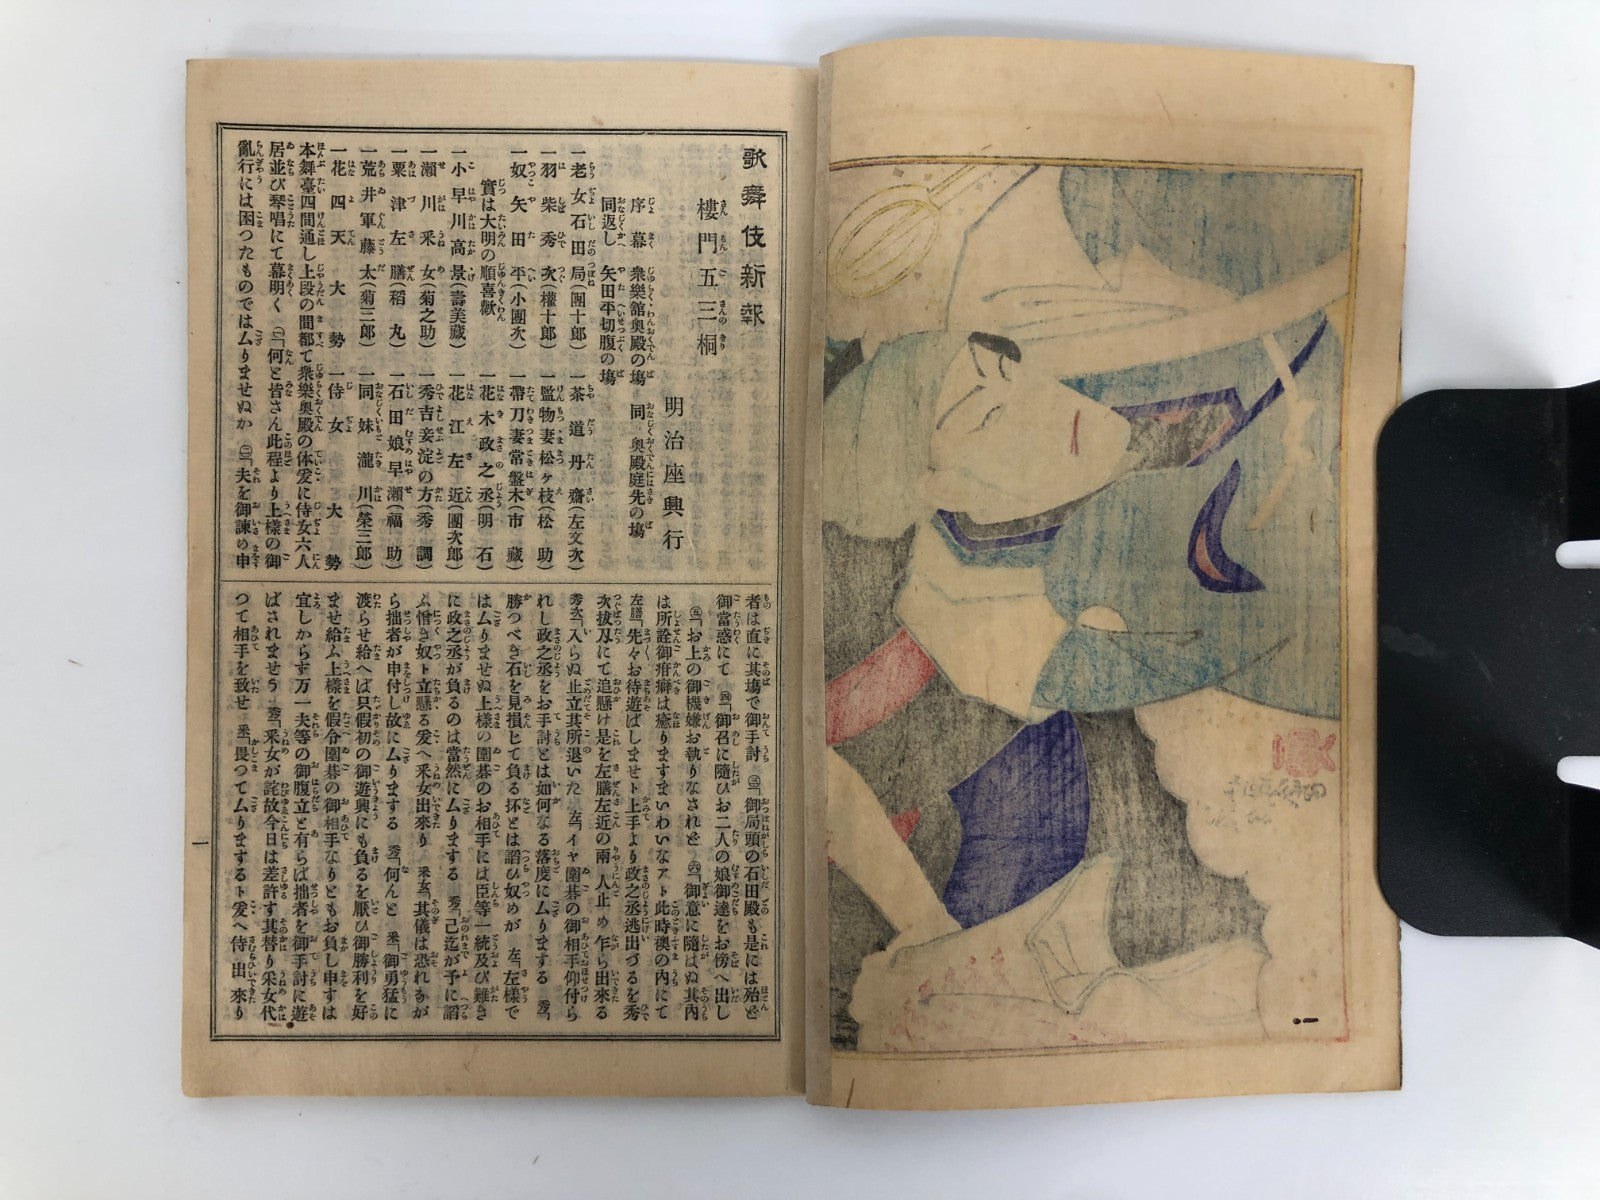 歌舞伎新報
樓門五三桐
明治座興行
序幕 衆樂館奥殿の塲 同 奥殿庭先の塲
同返し 矢田平切腹の塲
一老女石田局(團十郎) 一茶道丹齋(左文次)
一羽柴秀次(權十郎) 一監物妻松ヶ枝(松助)
一奴矢田平(小團次) 一帶刀妻常盤木(市藏)
實は大明の順喜歡 一花木政之丞(明石)
一小早川高景(壽美藏) 一花江左近(團次郎)
一瀬川采女(菊之助) 一秀吉妾淀の方(秀調)
一粟津左膳(稻丸) 一石田娘早瀬(福助)
一荒井軍藤太(菊三郎) 一同妹瀧川(榮三郎)
一花四天 大勢 一侍女 大勢
本舞臺四間通し上段の間都て衆樂奥殿の体爰に侍女六人
居並び琴唱にて幕明く ㊀「何と皆さん此程より上樣の御
亂行には困つたものではムりませぬか ㊁「夫を御諫め申
者は直に其塲で御手討 ㊂「御局頭の石田殿も是には殆ど
御當惑にて ㊃「御召に隨ひお二人の娘御達をお傍へ出し
㊄「お上の御機嫌お執りなされど ㊅「御意に隨はぬ其内
は所詮御疳癖は癒りますまいわいなアト此時襖の内にて
左膳「先々お待遊ばしませト上手より政之丞逃出づるを秀
次拔刀にて追懸け是を左膳左近の兩人止め乍ら出來る
秀次「入らぬ止立其所退いた 左「イヤ圍碁の御相手仰付ら
れし政之丞をお手討とは如何なる落度にムりまする 秀「
勝つべき石を見損じて負る坏とは謟ひ奴めが 左「左樣で
はムりませぬ上樣の圍碁のお相手には臣等一統及び難き
に政之丞が負るのは當然にムりまする 秀「己迄が予に謟
ふ憎き奴ト立懸る爰へ采女出來り 采女「其儀は恐れおが
ら拙者が申付し故にムりまする 秀「何んと 采「御勇猛に
渡らせ給へば只假初の御遊興にも負るを厭ひ御勝利を好
ませ給ふ上樣を假令圍碁の御相手なりともお負し申すは
宜しからす万一夫等の御腹立と有らば拙者を御手討に遊
ばされませう 秀「采女が詫故今日は差許す其替り采女代
つて相手を致せ 采「畏つてムりまするト爰へ侍出來り
一